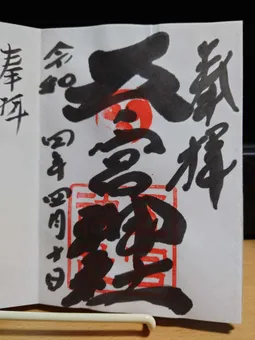 奉拝
五宮神社
令和四年四月十日
奉拝